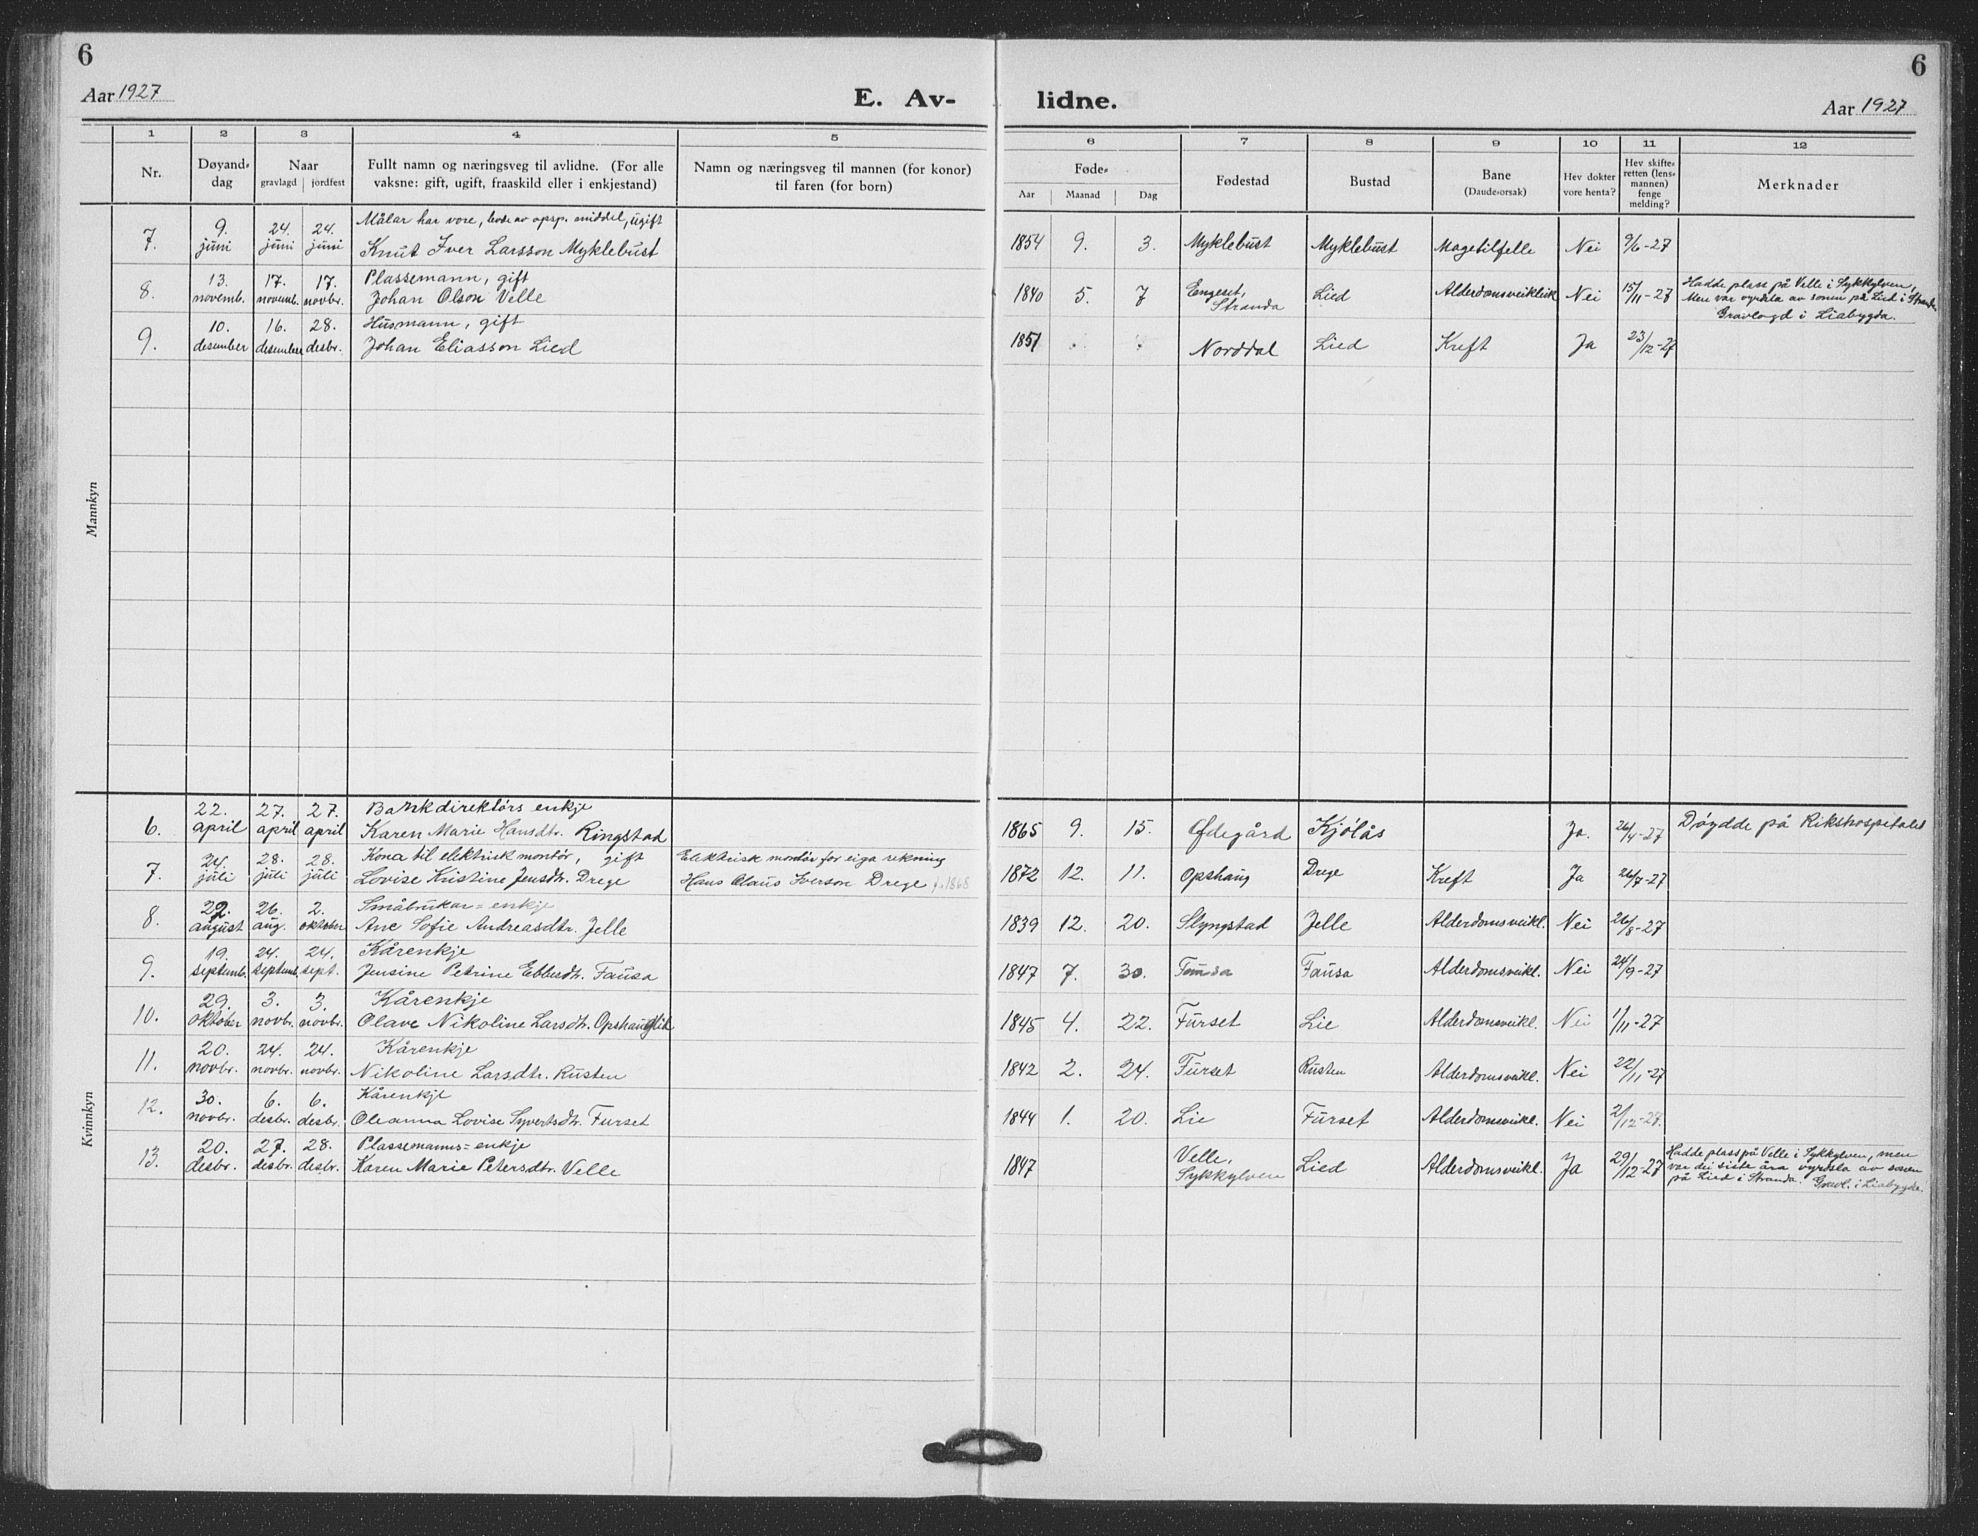 6
6
Aar 1927
E. Av-
lidne.
Aar 1927
1 2 3 4 5 6 7 8 9 10 11 12
Nr.
Døyand-
dag
Naar
gravlagd jordfest
Fullt namn og næringsveg til avlidne. (For alle
vaksne: gift, ugift, fraaskild eller i enkjestand)
Namn og næringsveg til mannen (for konor)
til faren (for born)
Føde-
Aar Maanad Dag
Fødestad
Bustad
Bane
(Daude-orsak)
Hev dokter
vore henta?
Hev skifte-
retten (lens-
mannen)
fenge
melding?
Merknader
Mannkyn
Målar har vore, levde av opsp. middel, ugift
7. 9. juni 24. juni 24. juni Knut Iver Larsson Myklebust 1854 9. 3. Myklebust Myklebust Magetilfelle Nei 9/6-27
Plassemann, gift
8. 13. novemb. 17. novemb. 17. novbr. Johan Olson Velle 1840 5. 7 Engeset, Stranda Lied Alderdomsveikleik Nei 15/11-27 Hadde plass på Velle i Sykkylven,
Men var vyrdsla av sonen på Lied i Stranda
Gravlagd i Liabygda.
Husmann, gift
9. 10. desember 16. desember 28. desbr. Johan Eliasson Lied 1851 Norddal Lied Kreft Ja 23/12-27
Kvinnkyn
Bankdirektørs enkje
6. 22. april 27. april 27. april Karen Marie Hansdtr. Ringstad 1865 9. 15. Ødegård Kjølås Ja. 26/4-27 Døydde på Rikshospitalet
Kona til elektrisk montør, gift Elektrisk montør for eiga rekning
7. 24. juli 28. juli 28. juli Lovise Kristine Jensdtr. Drege Hans Claus Iverson Drege f. 1868 1872 12. 11. Opshaug Drege Kreft Ja 26/7-27
Småbrukar-enkje
8. 22. august 26. aug. 2. oktober Ane Sofie Andreasdtr. Jelle 1839 12. 20. Slyngstad Jelle Alderdomsveikl. Nei 26/8-27
Kårenkje
9. 19. septemb. 24. septemb. 24. sept. Jensine Petrine Ebbesdtr. Fausa 1847 7. 30. Fausa Fausa Alderdomsveikl. Nei 24/9-27
Kårenkje
10. 29. oktober 3. novbr. 3. novbr. Olave Nikoline Larsdtr. Opshauglid 1845 4. 22. Furset Lie Alderdomsveikl. Nei 1/11-27
Kårenkje
11. 20. novbr. 24. novbr. 24. novbr. Nikoline Larsdtr. Rusten 1842 2. 24. Furset Rusten Alderdomsveikl. Nei 22/11-27
Kårenkje
12. 30. novbr. 6. desbr. 6. desbr. Oleanna Lovise Syvertsdtr. Furset 1844 1. 20. Lie Furset Alderdomsveikl. Nei 2/12-27.
Plassemanns-enkje
13. 20. desbr. 27. desbr. 28. desbr. Karen Marie Petersdtr. Velle 1847 Velle, Sykkylven Lied Alderdomsveikl. Ja 29/12-27 Hadde plass på Velle i Sykkylven, men
var dei siste åra vyrdsla av sonen
på Lied i Stranda. Gravl. i Liabygda.